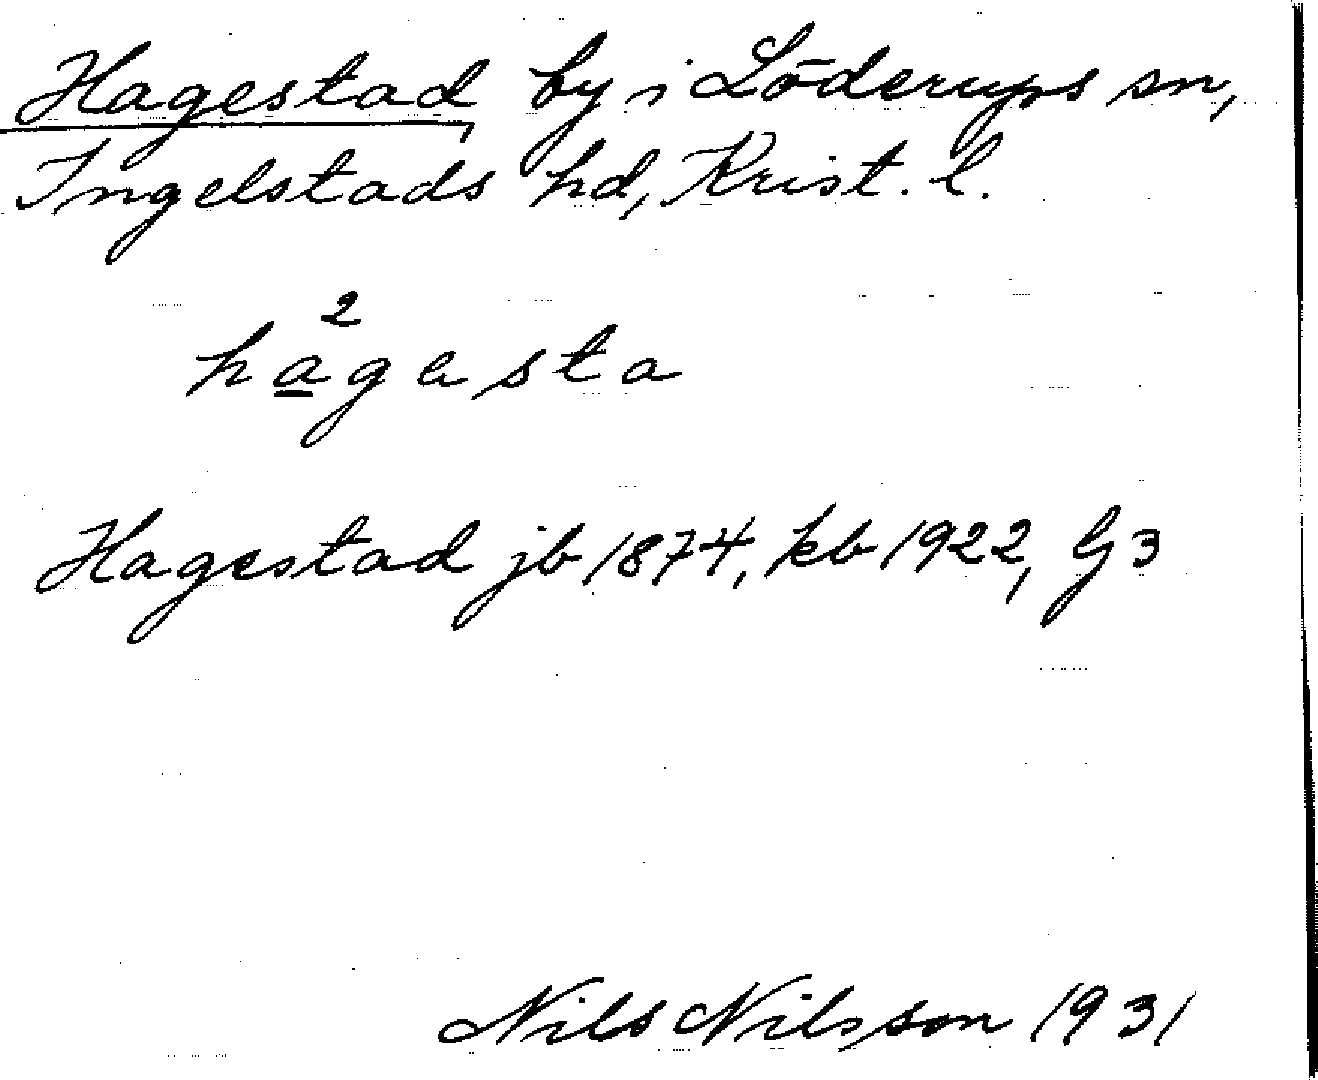 Hagestad, by i Löderups sn,
Ingelstads hd, Krist. l.
2
hagasta
Hagestad jb 1874, kb 1922, G 3
Nils Nilsson 1931